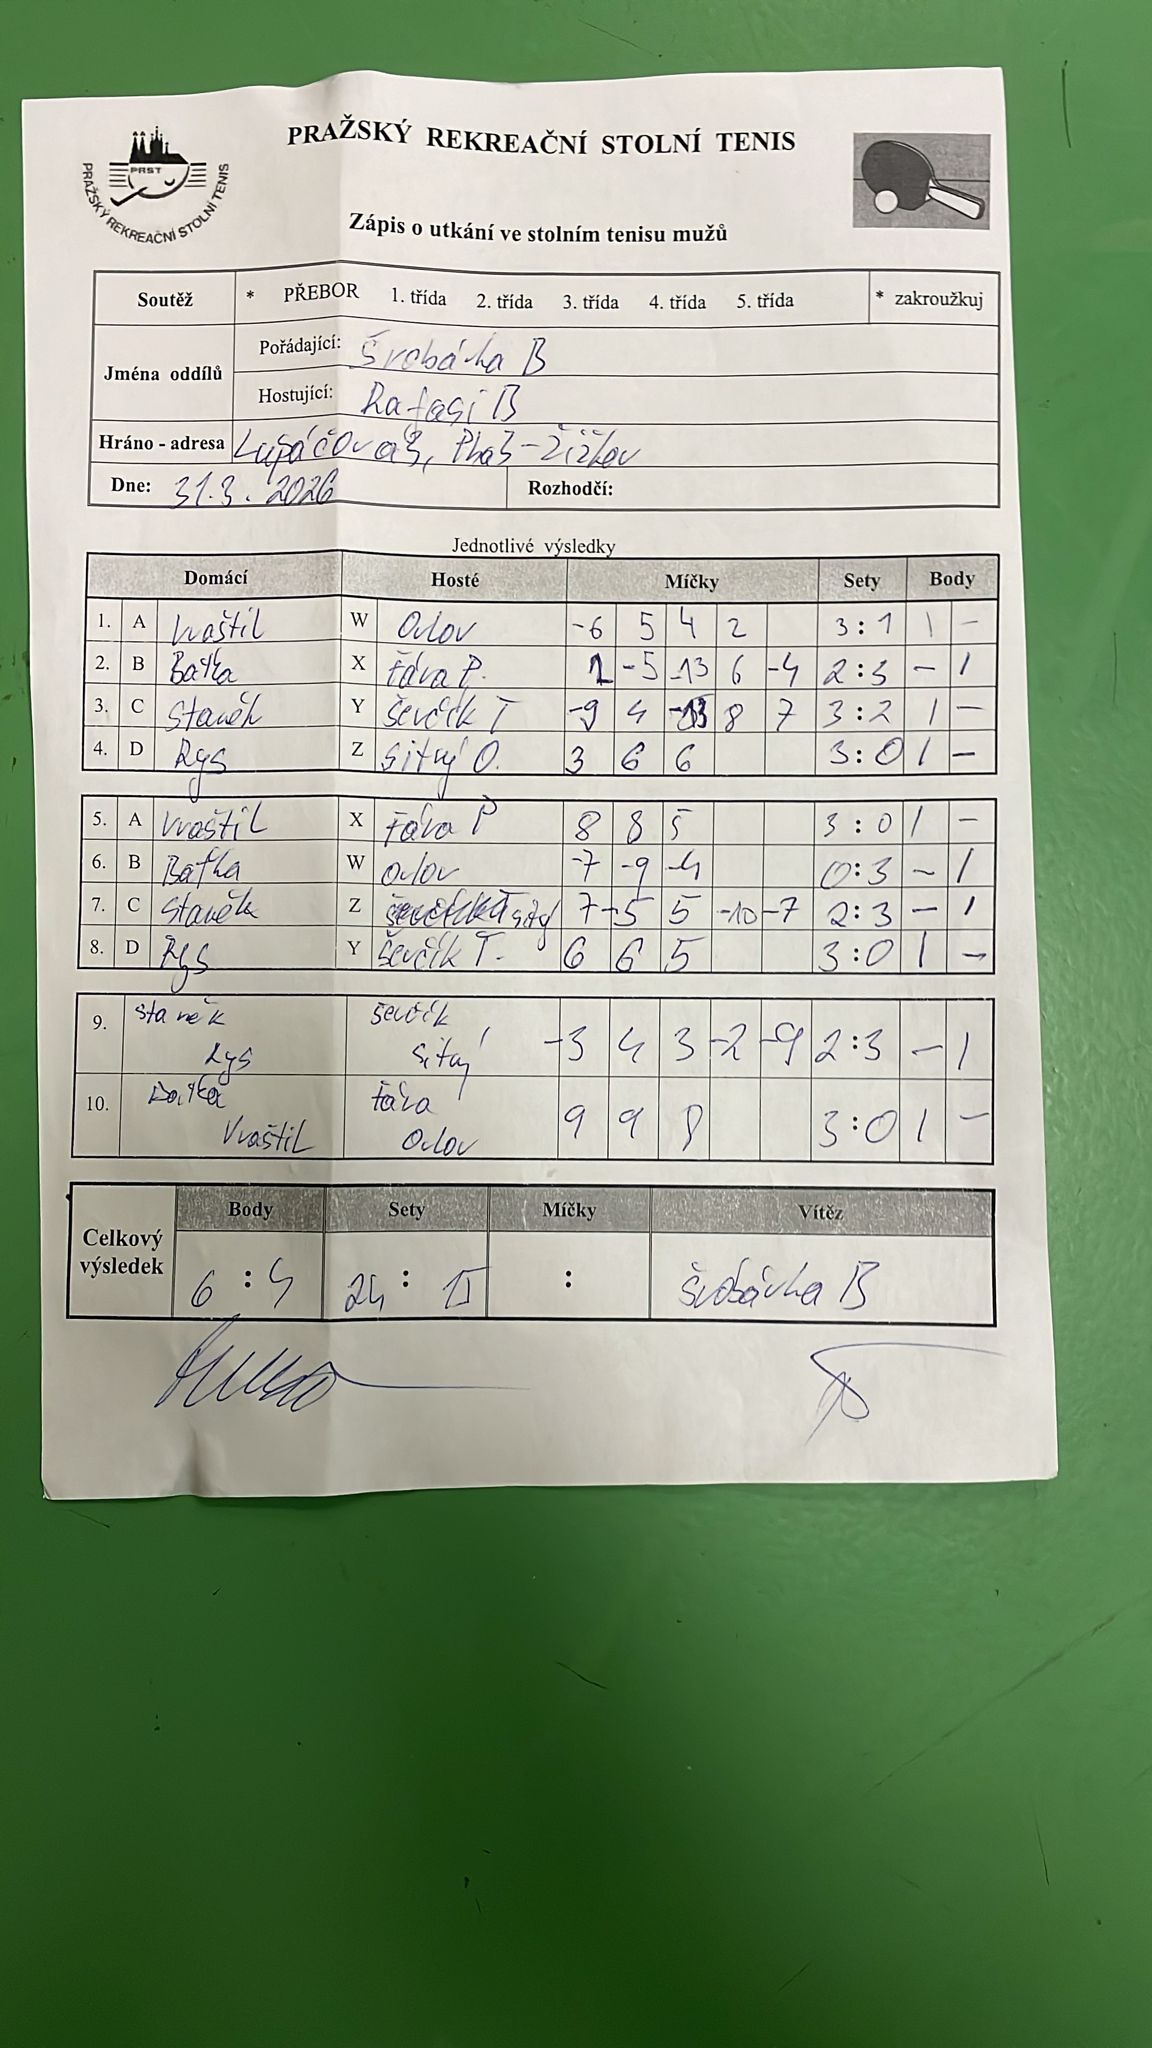 PRAŽSKÝ REKREAČNÍ STOLNÍ TENIS
PRST
PRAŽSKÝ REKREAČNÍ STOLNÍ TENIS
Zápis o utkání ve stolním tenisu mužů
Soutěž * PŘEBOR 1. třída 2. třída 3. třída 4. třída 5. třída * zakroužkuj
Jména oddílů
Pořádající: Švobávka B
Hostující: Rafasi B
Hráno - adresa Lupáčova, Žižkov
Dne: 31.3.2026 Rozhodčí:
Jednotlivé výsledky
Domácí Hosté Míčky Sety Body
1. A Vraštil W Orlov -6 5 4 2 3:1 1 -
2. B Baťka X Fára P. -5 -13 6 -4 2:3 - 1
3. C Staněk Y Ševčík T -9 4 8 7 3:2 1 -
4. D Rys Z Sitný O. 3 6 6 3:0 1 -
5. A Vraštil X Fára P 8 8 5 3:0 1 -
6. B Baťka W Orlov -7 -9 -4 0:3 - 1
7. C Staněk Z sitný 7 -5 5 -10 -7 2:3 - 1
8. D Rys Y Ševčík T. 6 6 5 3:0 1 -
9. Staněk Ševčík -3 4 3 -2 -9 2:3 - 1
Rys Sitný
10. Baťka Fára 9 9 8 3:0 1 -
Vraštil Orlov
Body Sety Míčky Vítěz
Celkový výsledek 6 : 4 24 : 15 : Švobávka B